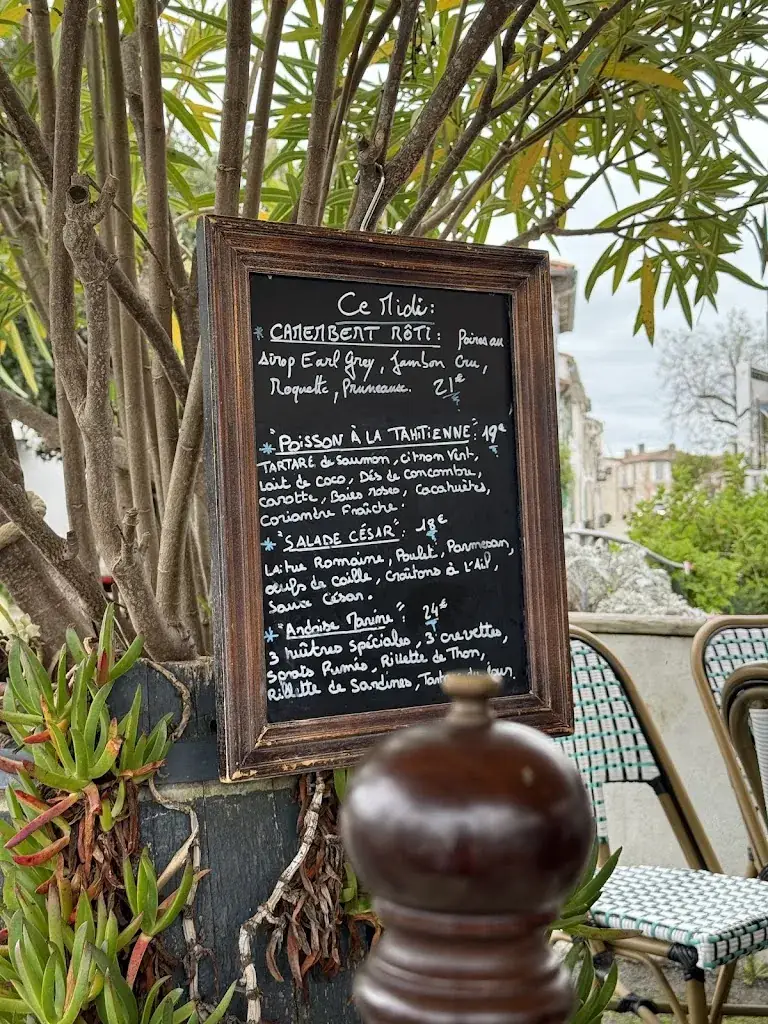 Ce Midi:
* CAMEMBERT RÔTI: Poires au
sirop Earl Grey, Jambon Cru,
Roquette, Pruneaux. 21€
* "POISSON À LA TAHITIENNE": 19€
TARTARE de Saumon, citron Vert,
Lait de coco, Dés de Concombre,
carotte, Baies roses, Cacahuètes,
Coriandre Fraîche.
* "SALADE CÉSAR": 18€
Laitue Romaine, Poulet, Parmesan,
œufs de caille, Croûtons à L'Ail,
Sauce César.
* "Ardoise Marine": 24€
3 huîtres Spéciales, 3 crevettes,
Sprats Fumés, Rillette de Thon,
Rillette de Sardines, jour.